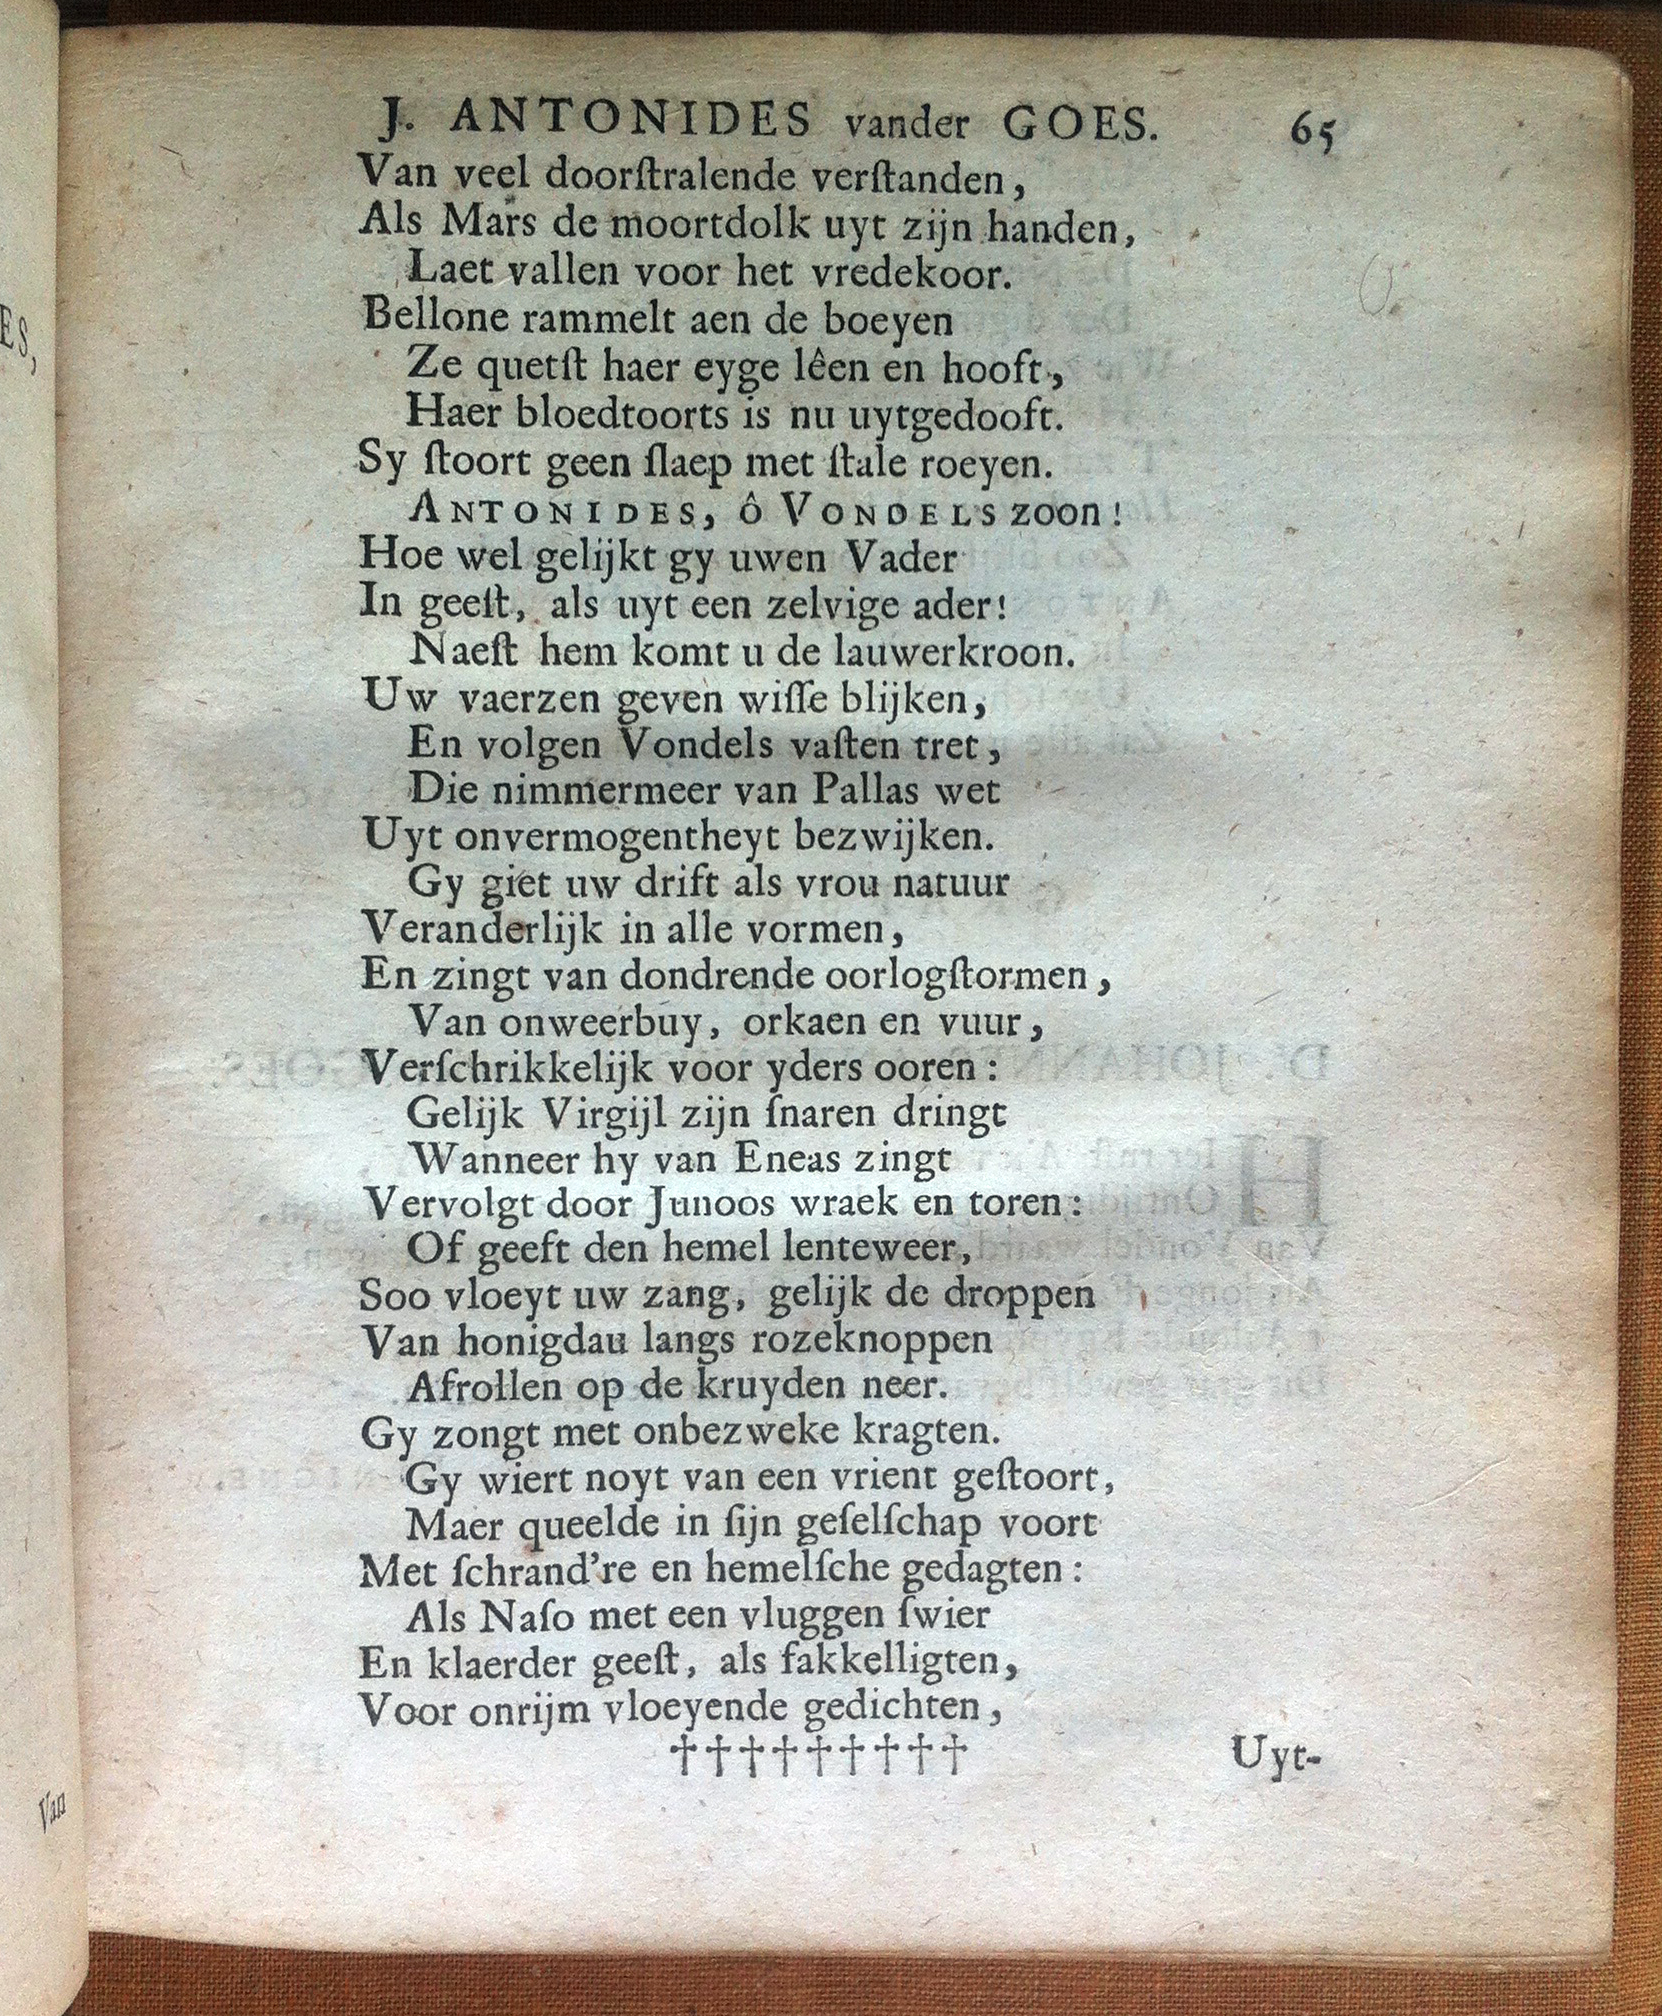 J. ANTONIDES vander GOES. 65
Van veel doorſtralende verſtanden,
Als Mars de moortdolk uyt zijn handen,
Laet vallen voor het vredekoor.
Bellone rammelt aen de boeyen
Ze quetſt haer eyge lêen en hooft,
Haer bloedtoorts is nu uytgedooft.
Sy ſtoort geen ſlaep met ſtale roeyen.
ANTONIDES, ô VONDELS zoon!
Hoe wel gelijkt gy uwen Vader
In geeſt, als uyt een zelvige ader!
Naeſt hem komt u de lauwerkroon.
Uw vaerzen geven wiſſe blijken,
En volgen Vondels vaſten tret,
Die nimmermeer van Pallas wet
Uyt onvermogentheyt bezwijken.
Gy giet uw drift als vrou natuur
Veranderlijk in alle vormen,
En zingt van dondrende oorlogſtormen,
Van onweerbuy, orkaen en vuur,
Verſchrikkelijk voor yders ooren:
Gelijk Virgijl zijn ſnaren dringt
Wanneer hy van Eneas zingt
Vervolgt door Junoos wraek en toren:
Of geeft den hemel lenteweer,
Soo vloeyt uw zang, gelijk de droppen
Van honigdau langs rozeknoppen
Afrollen op de kruyden neer.
Gy zongt met onbezweke kragten.
Gy wiert noyt van een vrient geſtoort,
Maer queelde in ſijn geſelſchap voort
Met ſchrand're en hemelſche gedagten:
Als Naſo met een vluggen ſwier
En klaerder geeſt, als fakkelligten,
Voor onrijm vloeyende gedichten,
††††††††† Uyt-
ES,
Van